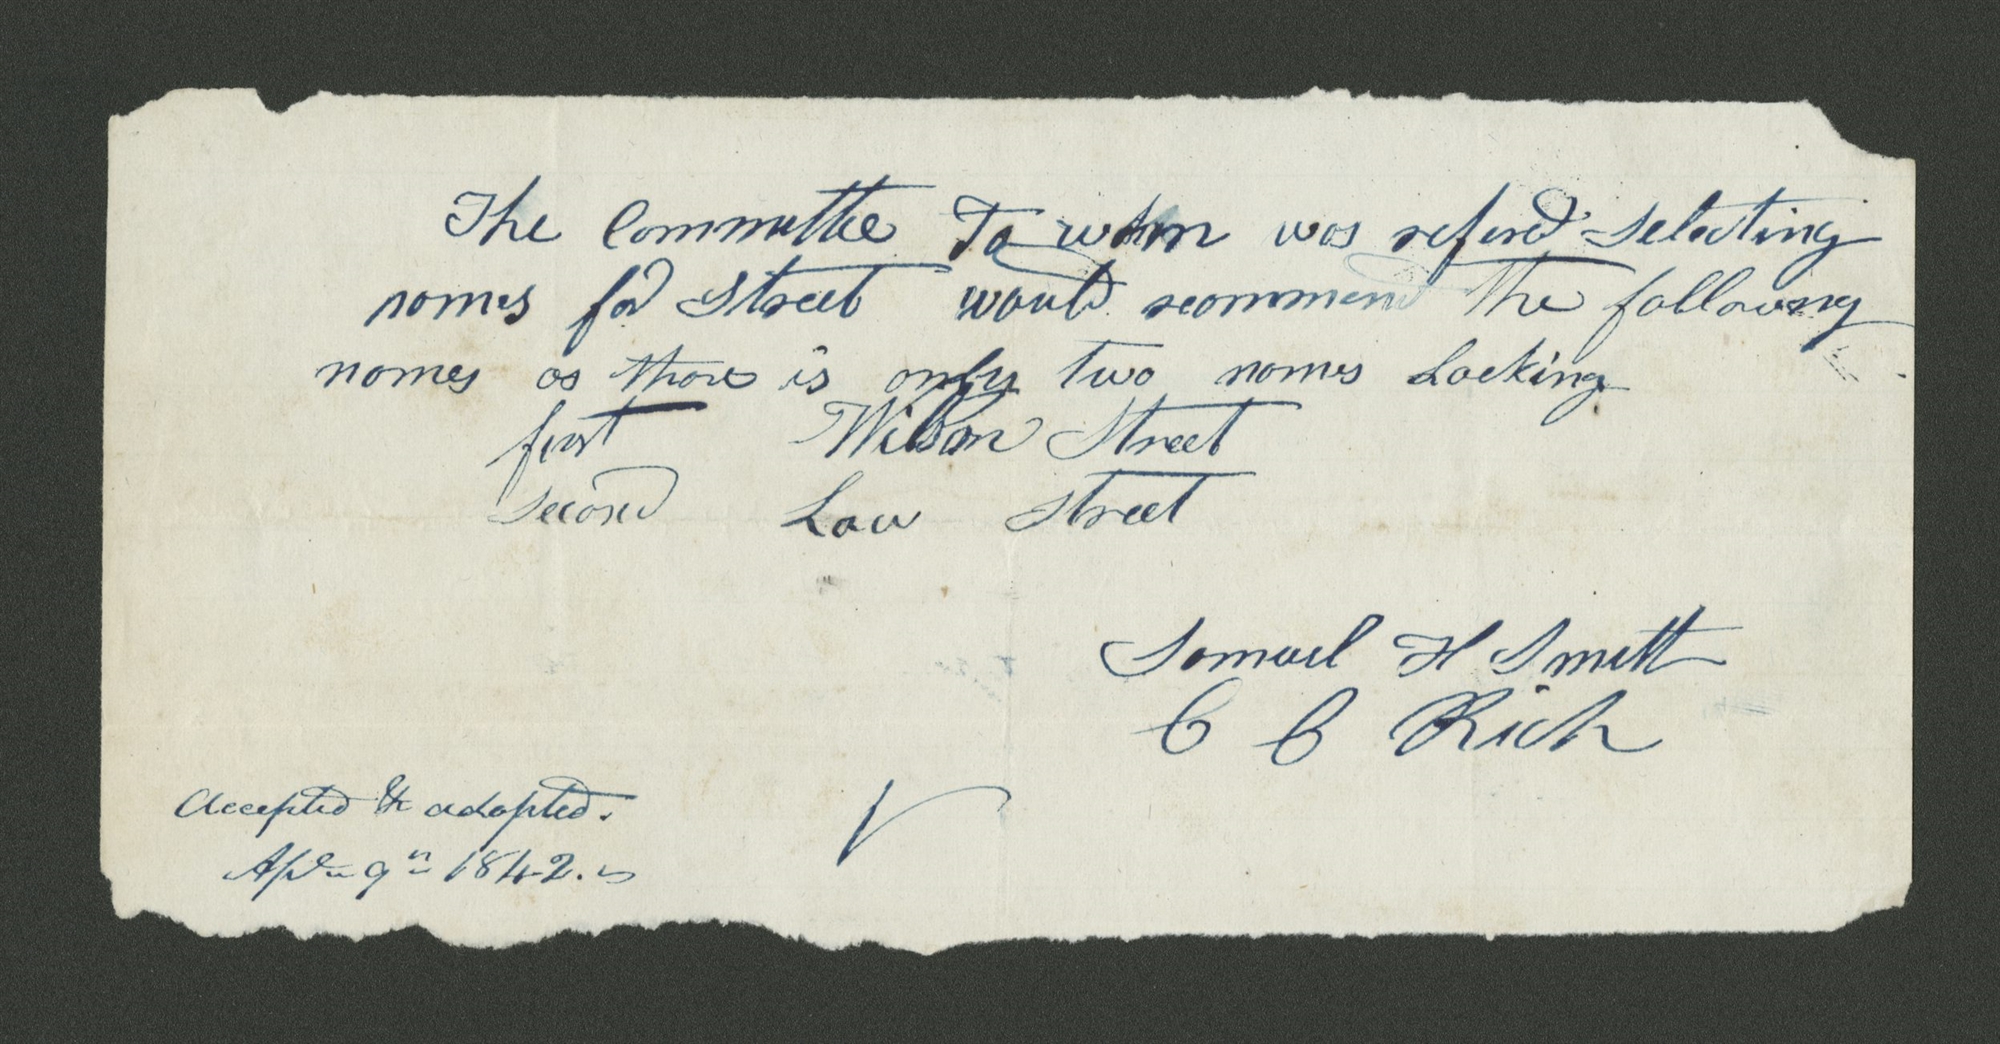 The Committee To whom was refired selecting
names for Street would recommend The following
names as thare is only two names Lacking
first Wilson Street
second Law Street
Samuel H Smith
C C Rich
Accepted & adopted.
1842.